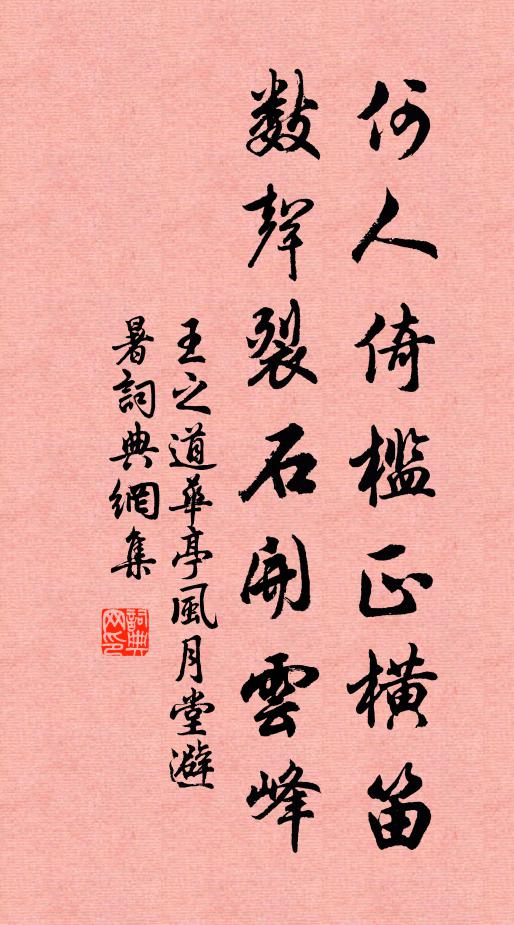 何人倚檻正橫笛
數聲裂石開雲峰
王之道華亭風月堂避
暑詞典網集
詞典網印